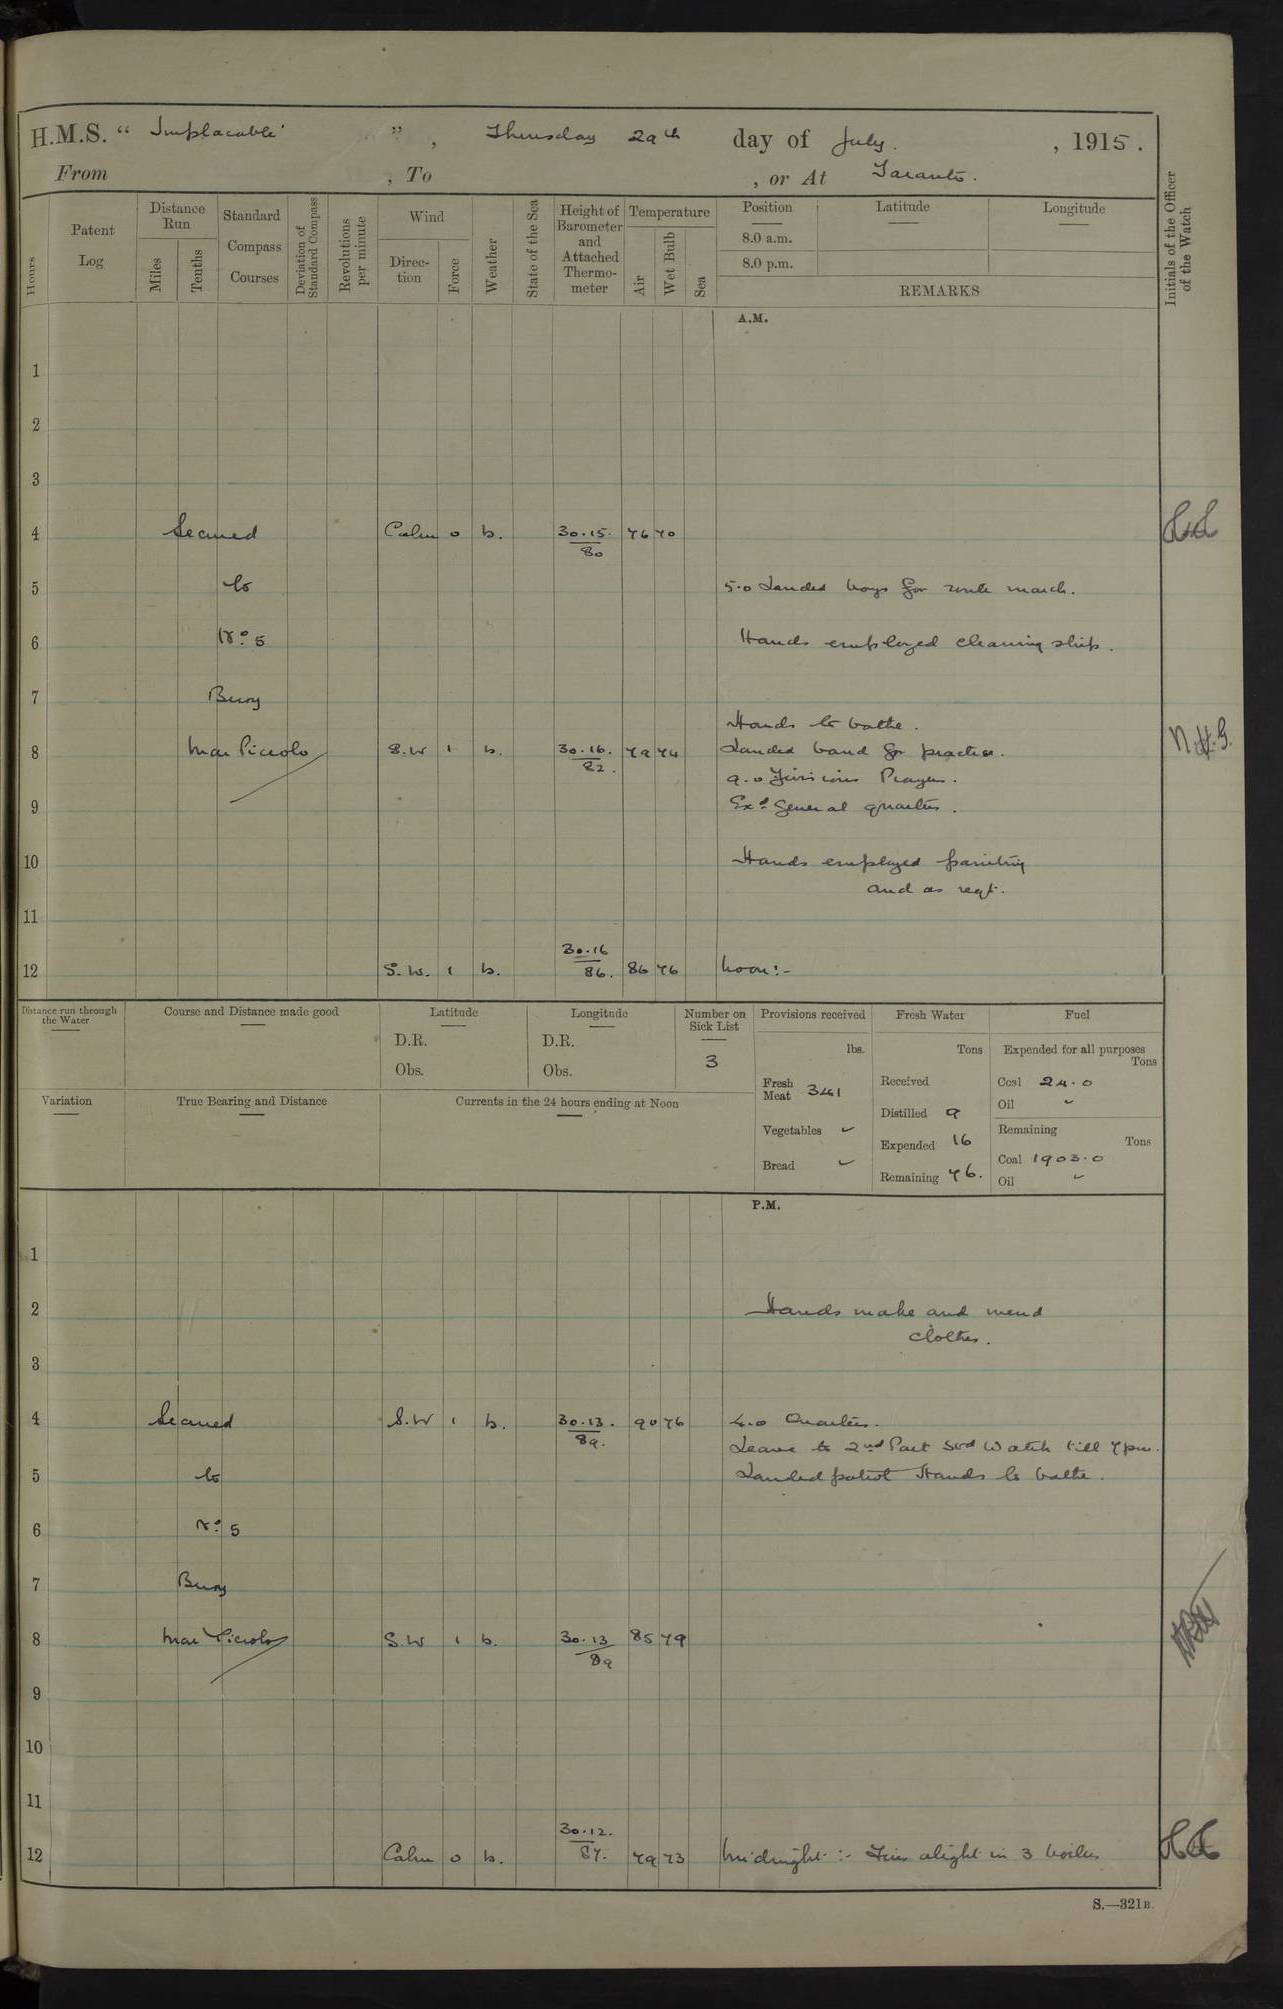 H.M.S. “ Implacable ” , Thursday 29th day of July. , 1915.
From , To , or At Taranto.
Hours
Patent Log
Distance Run
Miles
Tenths
Standard Compass Courses
Deviation of Standard Compass
Revolutions per minute
Wind
Direction
Force
Weather
State of the Sea
Height of Barometer and Attached Thermometer
Temperature
Air
Wet Bulb
Sea
Position
Latitude
Longitude
8.0 a.m.
8.0 p.m.
REMARKS
Initials of the Officer of the Watch
A.M.
1
2
3
4 Secured Calm 0 b. 30.15. 80 76 70
5 to 5.0 Landed boys for route march.
6 No. 5 Hands employed cleaning ship.
7 Buoy
Hands to bathe.
8 Mar Piccolo S.W 1 b. 30.16. 82. 79 74 Landed band for practice. N.H.G.
9.0 Divisions Prayers.
9 Exd. General quarters.
10 Hands employed painting
and as reqt.
11
12 S.W. 1 b. 30.16 86. 86 76 Noon:-
Distance run through the Water
Course and Distance made good
Latitude
D.R.
Obs.
Longitude
D.R.
Obs.
Number on Sick List
3
Provisions received
lbs.
Fresh Meat 341
Vegetables
Bread
Fresh Water
Tons
Received
Distilled 9
Expended 16
Remaining 76.
Fuel
Expended for all purposes
Tons
Coal 24.0
Oil
Remaining
Tons
Coal 1903.0
Oil
Variation
True Bearing and Distance
Currents in the 24 hours ending at Noon
P.M.
1
2 Hands make and mend
clothes.
3
4 Secured S.W 1 b. 30.13. 89. 90 76 4.0 Quarters.
Leave to 2nd Part Stbd Watch till 7pm.
5 to Landed patrol Hands to bathe.
6 No. 5
7 Buoy
8 Mar Piccolo S.W 1 b. 30.13 89 85 79
9
10
11
12 Calm 0 b. 30.12. 87. 79 73 Midnight :- Fires alight in 3 boilers
S.—321B.